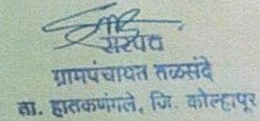 सरपंच
ग्रामपंचायत तळसंदे
ता. हातकणंगले, जि. कोल्हापूर